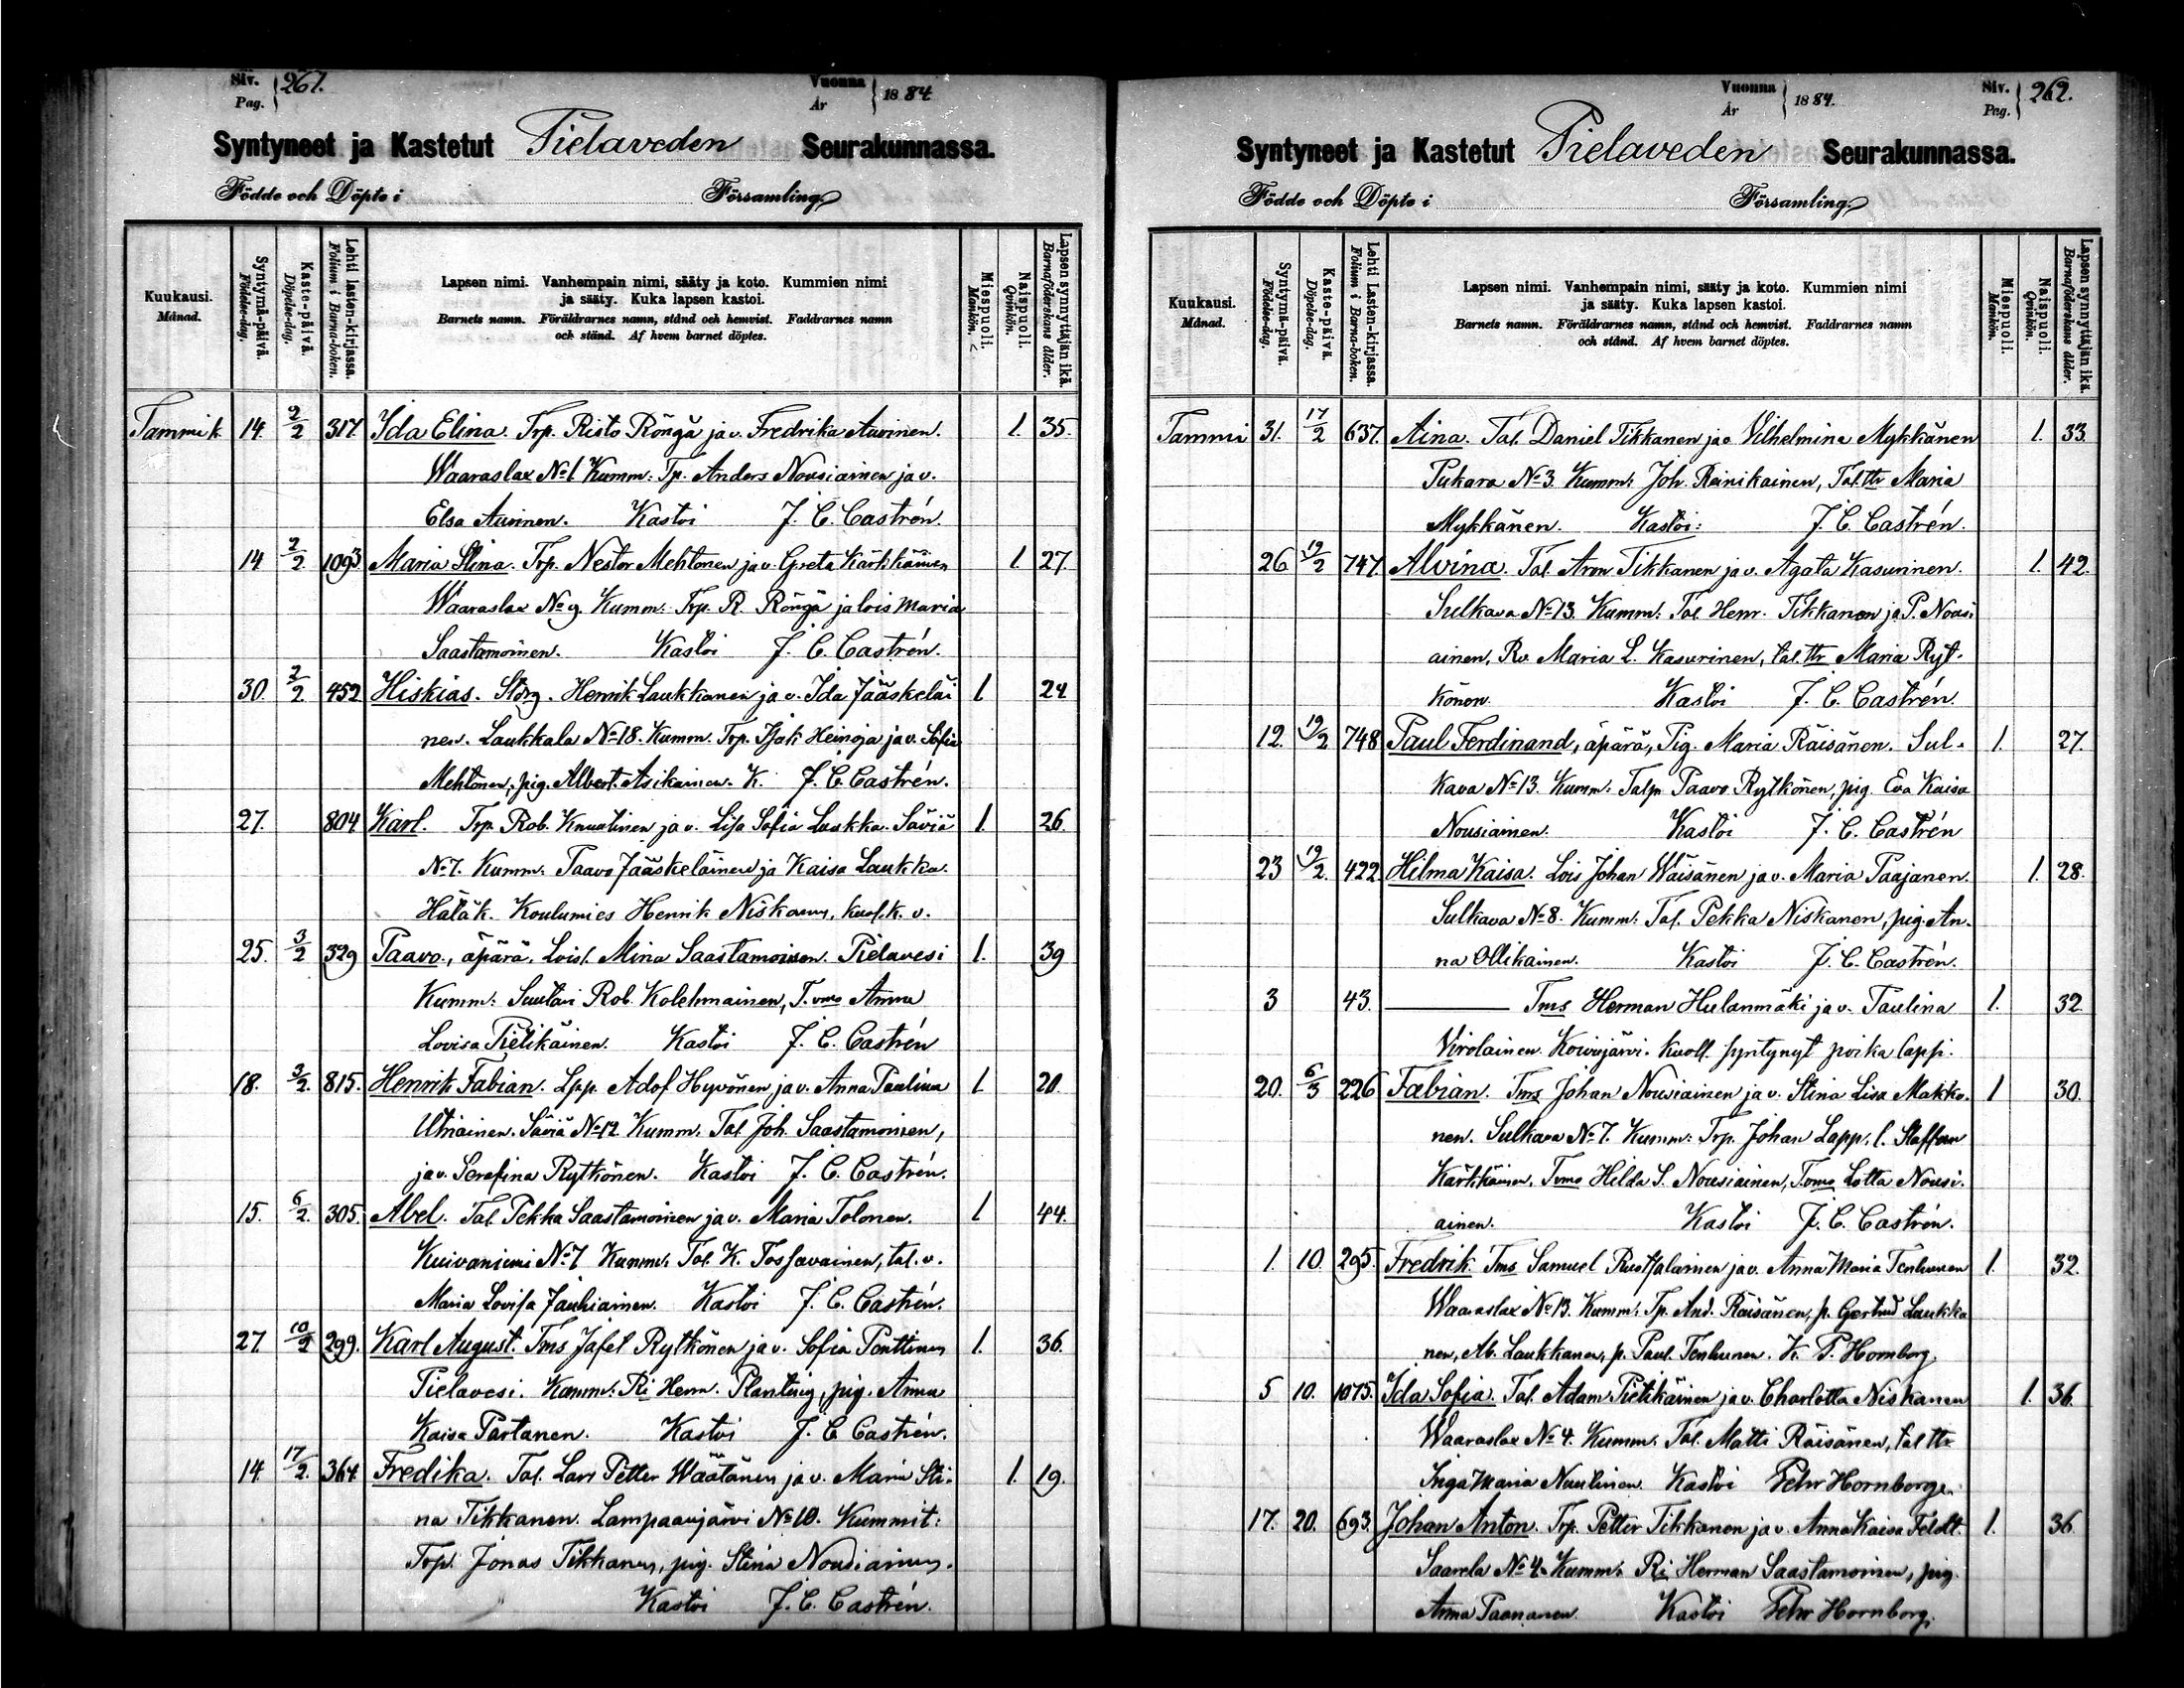 Siv. Pag. 261.
Vuonna År 1884
Syntyneet ja Kastetut Pielaveden Seurakunnassa.
Födde och Döpte i Församling
Kuukausi. Månad.
Syntymä-päivä. Födelse-dag.
Kaste-päivä. Döpelse-dag.
Lehti lasten-kirjassa. Folium i Barna-boken.
Lapsen nimi. Vanhempain nimi, sääty ja koto. Kummien nimi
ja sääty. Kuka lapsen kastoi.
Barnets namn. Föräldrarnes namn, stånd och hemvist. Faddrarnes namn
och stånd. Af hvem barnet döptes.
Miespuoli. Mankön.
Naispuoli. Qvinkön.
Lapsen synnyttäjän ikä. Barnaföderskans ålder.
Tammik. 14. 2/2 317. Ida Elina. Trp. Risto Röngä ja v. Fredrika Auvinen. 1. 35.
Waaraslax No 1 Kumm: Tp. Anders Nousiainen ja v.
Elsa Auvinen. Kastoi J. C. Castrén.
14 2/2 1093 Maria Stina. Trp. Nestor Mehtonen ja v. Greta Kärkkäinen 1 27.
Waaraslax No 9. Kumm: Trp. R. Röngä ja lois Maria
Saastamoinen. Kastoi J. C. Castrén.
30. 2/2 452 Hiskias. Henrik Laukkanen ja v. Ida Jääskeläi 1 24
nen. Laukkala No 18. Kumm. Trp. Heinoja ja v. Sofia
Mehtonen, pig. Albert. Asikainen. K. J. C. Castrén.
27. 804 Karl. Trp. Rob. Knuutinen ja v. Lisa Sofia Laukka. Säviä 1. 26.
No 7. Kumm: Paavo Jääskeläinen ja Kaisa Laukka.
Hätäk. Koulumies Henrik Niskanen, k. v.
25. 3/2 329 Paavo, äpärä. Loisl. Mina Saastamoinen. Pielavesi 1. 39
Kumm: Suutari Rob. Kolehmainen, T. vmo Anna
Lovisa Pielikäinen. Kastoi J. C. Castrén
18. 3/2. 815. Henrik Fabian. Lpp. Adof Hyvönen ja v. Anna Paulina 1 20.
Utriainen. Säviä No 12 Kumm. Tal Joh. Saastamoinen,
ja v. Serafina Rytkönen. Kastoi J. C. Castrén.
15. 6/2. 305. Abel. Tal. Pekka Saastamoinen ja v. Maria Tolonen. 1 44.
Kuivaniemi No 7 Kumm: Tal. K. Tossavainen, tal. v.
Maria Lovisa Jauhiainen. Kastoi J. C. Castrén.
27. 10/2 299. Karl August. Tms Jafet Rytkönen ja v. Sofia Penttinen 1. 36.
Pielavesi. Kumm: Ri Herm. Planting, pig. Anna
Kaisa Partanen. Kastoi J. C. Castrén.
14. 17/2. 364. Fredika. Tal. Lars Petter Wäätänen ja v. Maria Sti- 1. 19.
na Tikkanen. Lampaanjärvi No 10. Kummit:
Trp. Jonas Tikkanen, pig. Stina Nousiainen.
Kastoi J. C. Castrén.
Vuonna År 1884.
Siv. Pag. 262.
Syntyneet ja Kastetut Pielaveden Seurakunnassa.
Födde och Döpte i Församling
Kuukausi. Månad.
Syntymä-päivä. Födelse-dag.
Kaste-päivä. Döpelse-dag.
Lehti Lasten-kirjassa. Folium i Barna-boken.
Lapsen nimi. Vanhempain nimi, sääty ja koto. Kummien nimi
ja sääty. Kuka lapsen kastoi.
Barnets namn. Föräldrarnes namn, stånd och hemvist. Faddrarnes namn
och stånd. Af hvem barnet döptes.
Miespuoli. Mankön.
Naispuoli. Qvinkön.
Lapsen synnyttäjän ikä. Barnaföderskans ålder.
Tammi 31. 17/2 637. Aina. Tal. Daniel Tikkanen ja v. Vilhelmina Mykkänen 1. 33.
Pukara No 3. Kumm: Joh. Reinikainen, Tal. ttr Maria
Mykkänen. Kastoi: J. C. Castrén.
26 19/2 747 Alvina. Tal. Aron Tikkanen ja v. Agata Kasurinen. 1. 42.
Sulkava No 13. Kumm: Tal. Henr. Tikkanen ja P. Nousi
ainen, Rv. Maria L. Kasurinen, tal. ttr Maria Ryt-
könen. Kastoi J. C. Castrén.
12. 19/2 748 Paul Ferdinand, äpärä, Pig. Maria Räisänen. Sul- 1. 27.
kava No 13. Kumm: Talp. Paavo Rytkönen, pig. Eva Kaisa
Nousiainen. Kastoi J. C. Castrén
23 19/2. 422. Hilma Kaisa. Lois Johan Wäisänen ja v. Maria Paajanen. 1. 28.
Sulkava No 8. Kumm: Tal. Pekka Niskanen, pig. An-
na Ollikainen. Kastoi J. C. Castrén.
3 43. Tms Herman Hulanmäki ja v. Paulina 1. 32.
Virolainen. Koivujärvi. Kuoll. syntynyt poika lapsi.
20. 6/3 226 Fabian. Tms Johan Nousiainen ja v. Stina Lisa Makko- 1 30.
nen. Sulkava No 7. Kumm: Trp. Johan Lapp. l. Staffan
Kärkkäinen, Tvmo Hilda S. Nousiainen, T.vmo Lotta Nousi-
ainen. Kastoi J. C. Castrén.
1. 10. 295. Fredrik. Tms Samuel Ruotsalainen ja v. Anna Maria Tenhunen 1. 32.
Waaraslax No 13. Kumm: Tp. And. Räisänen, p. Gertrud Laukka
nen, Ab. Laukkanen, p. Paul. Tenhunen. K. P. Hornborg.
5 10. 1075. Ida Sofia. Tal. Adam Pietikäinen ja v. Charlotta Niskanen 1. 36.
Waaraslax No 4. Kumm. Tal. Matti Räisänen, tal ttr
Inga Maria Nuutinen. Kastoi Petr Hornborg.
17. 20. 693. Johan Anton. Trp. Petter Tikkanen ja v. Anna Kaisa Feldt. 1. 36.
Saarela No 4. Kumm: Ri Herman Saastamoinen, pig.
Anna Paananen. Kastoi Petr Hornborg.